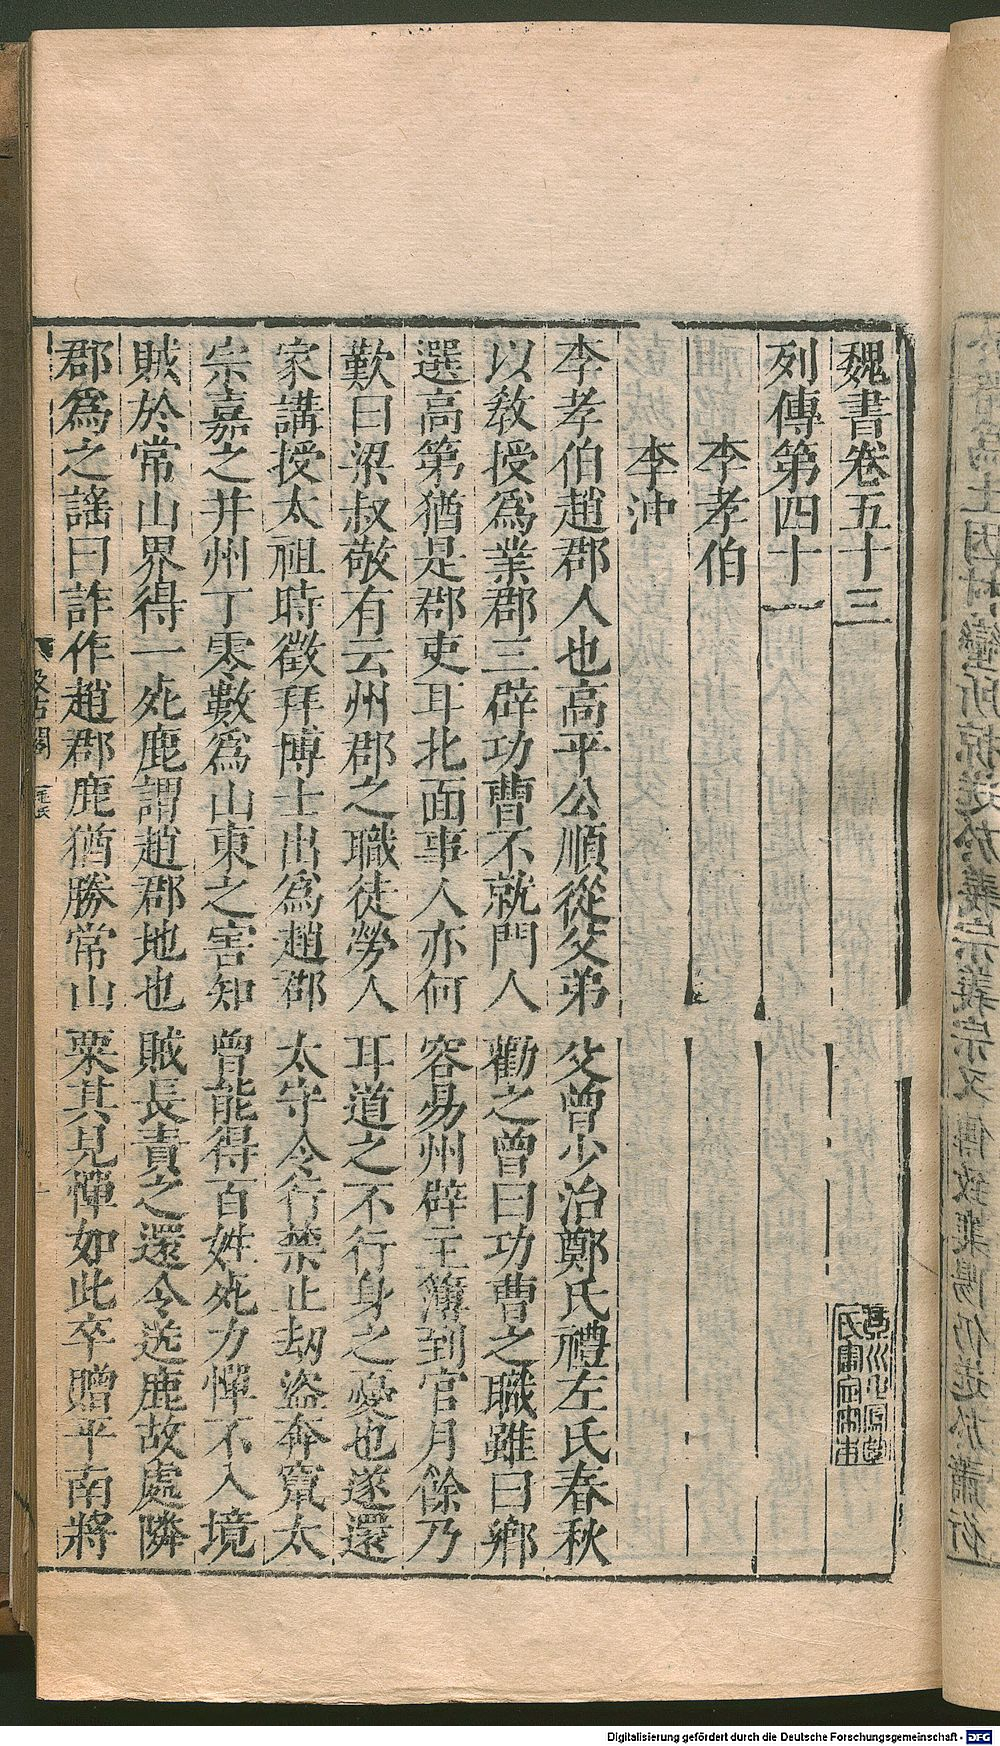 魏書卷五十三
列傳第四十一
李孝伯
李沖
李孝伯趙郡人也高平公順從父弟父曾少治鄭氏禮左氏春秋
以敎授爲業郡三辟功曹不就門人勸之曾曰功曹之職雖曰鄉
選高第猶是郡吏耳北面事人亦何容易州辟主簿到官月餘乃
歎曰梁叔敬有云州郡之職徒勞人耳道之不行身之憂也遂還
家講授太祖時徵拜博士出爲趙郡太守令行禁止劫盜奔竄太
宗嘉之并州丁零數爲山東之害知曾能得百姓死力憚不入境
賊於常山界得一死鹿謂趙郡地也賊長責之還令送鹿故處隣
郡爲之謠曰詐作趙郡鹿猶勝常山粟其見憚如此卒贈平南將
汲古閣
毛氏
Digitalisierung gefördert durch die Deutsche Forschungsgemeinschaft - DFG